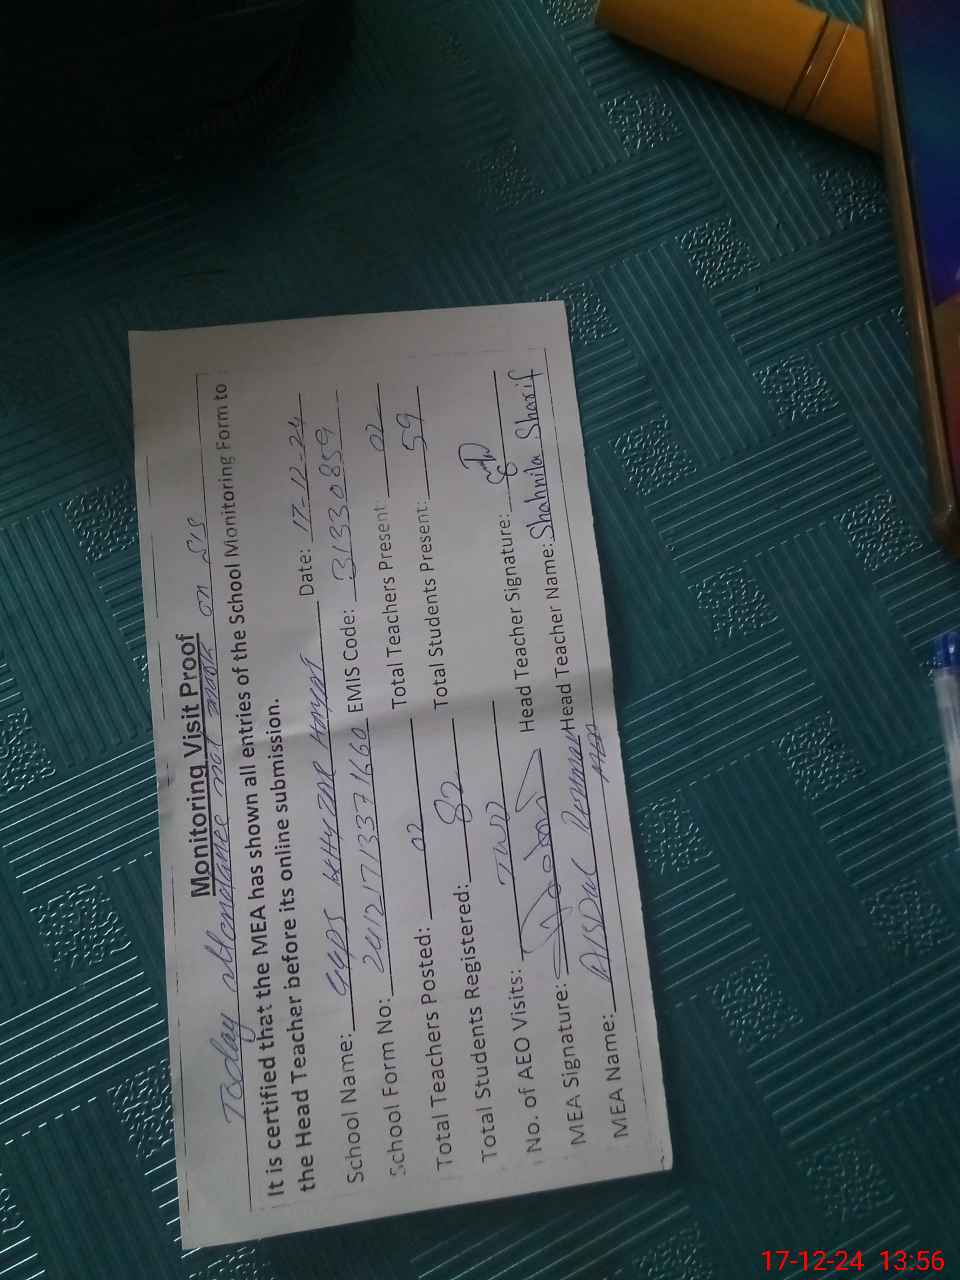 Monitoring Visit Proof
Today attendance not mark on SIS
It is certified that the MEA has shown all entries of the School Monitoring Form to
the Head Teacher before its online submission.
School Name: GGPS Date: 17-12-24
School Form No: 24121713371660 EMIS Code: 31330859
Total Teachers Posted: 02 Total Teachers Present: 02
Total Students Registered: 82 Total Students Present: 59
No. of AEO Visits: TWO Head Teacher Signature:
MEA Signature: Head Teacher Name: Shahnila Sharif
MEA Name:
17-12-24 13:56